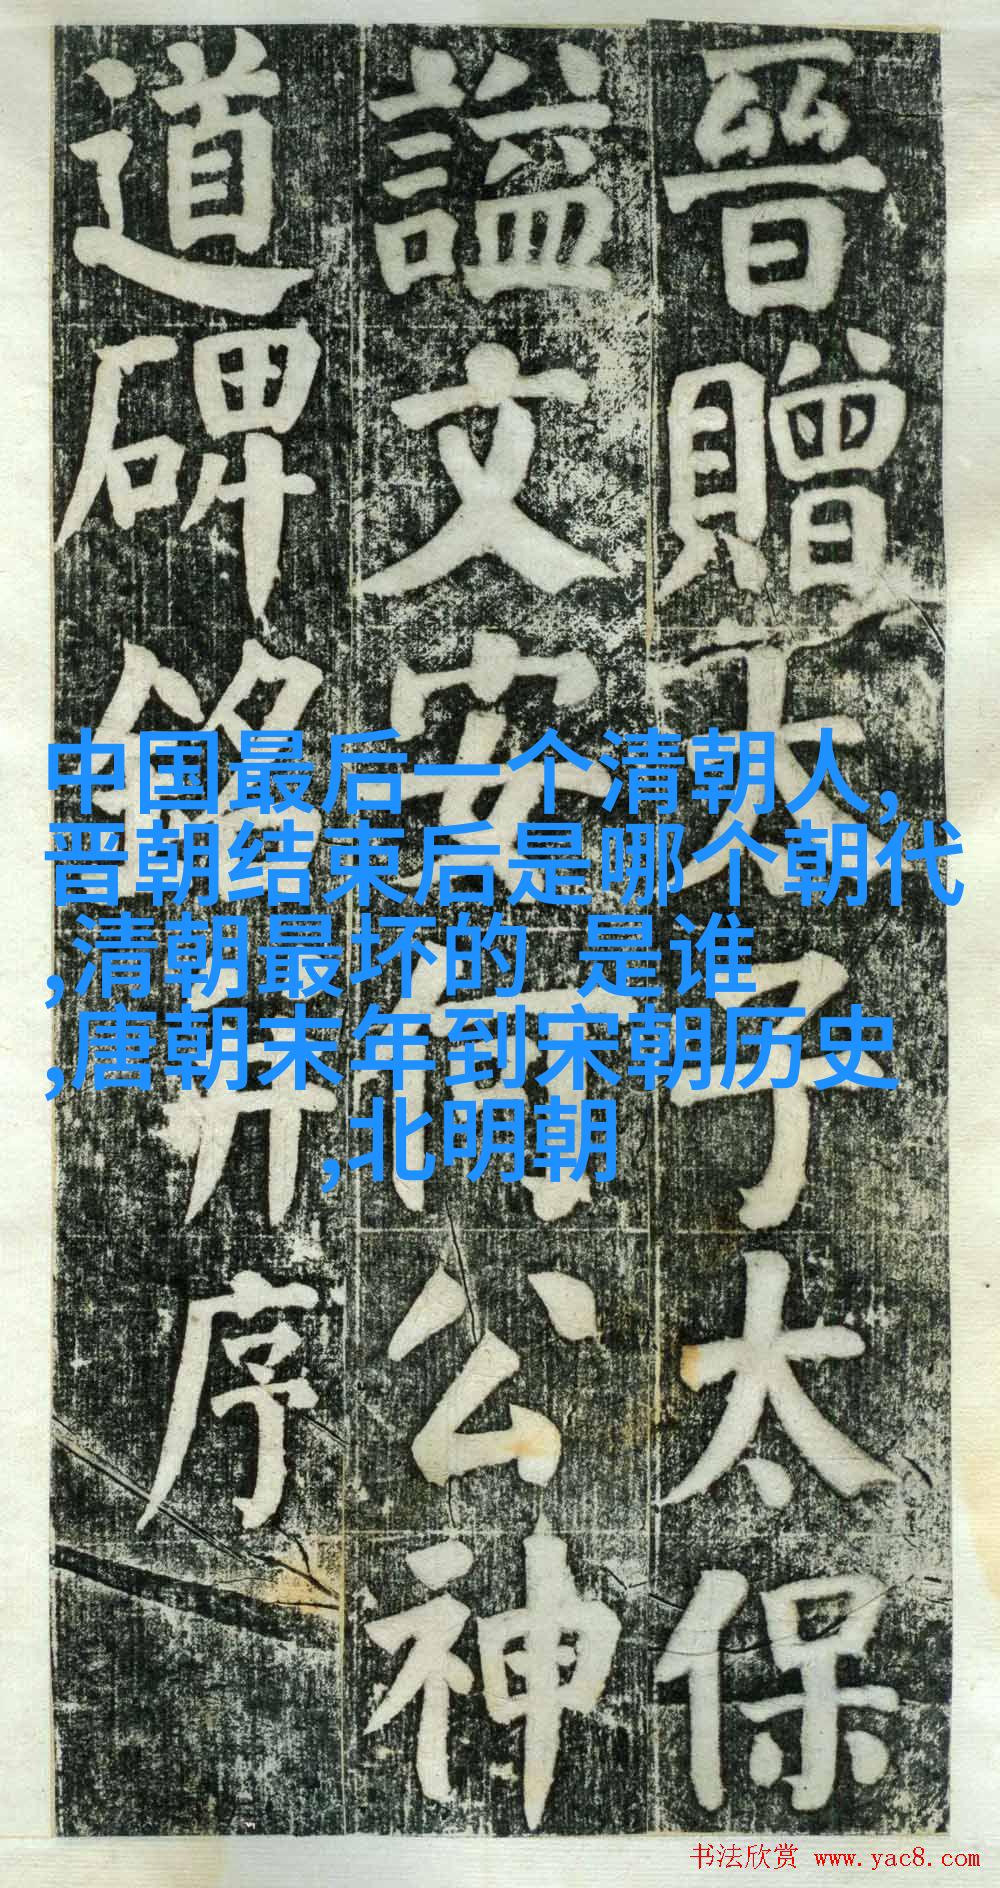 晉贈太子太保
謚文安何公神
道碑銘并序
中国最后一个清朝人,
晋朝结束后是哪个朝代
,清朝最坏的 是谁
,唐朝末年到宋朝历史
,北明朝
书法欣赏 www.yac8.com